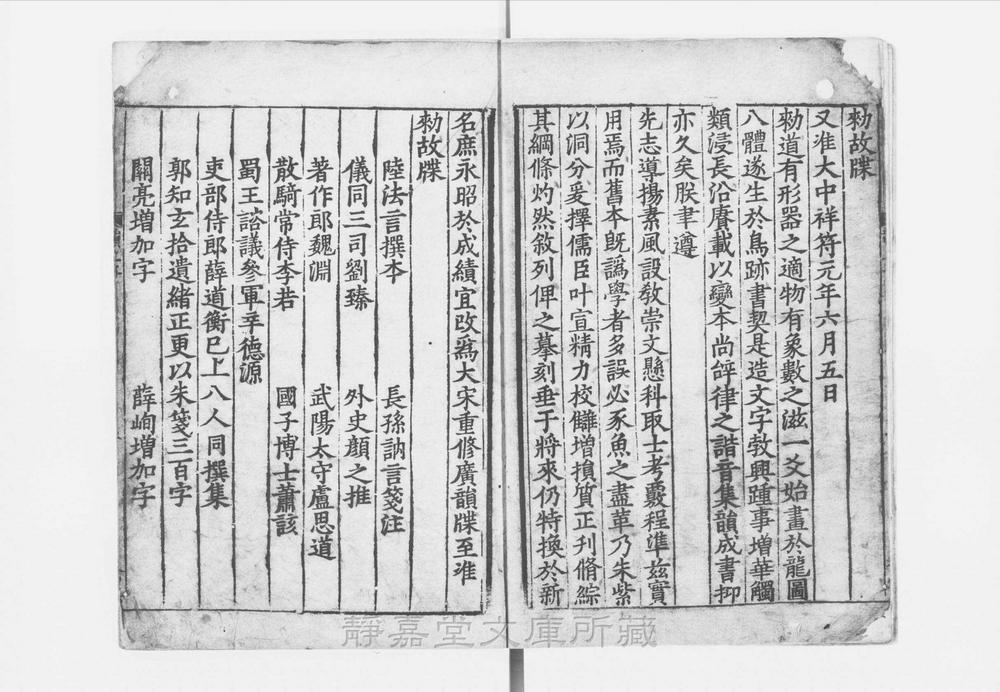 勑故牒
又准大中祥符元年六月五日
勑道有形器之適物有象數之滋一爻始畫於龍圖
八體遂生於鳥跡書契是造文字敎興踵事增華觸
類浸長沿賡載以變本尚辝律之諧音集韻成書抑
亦久矣朕聿遵
先志導揚素風設敎崇文懸科取士考覈程準兹實
用焉而舊本旣譌學者多誤必豕魚之盡革乃朱紫
以洞分爰擇儒臣叶宣精力校讎增損質正刋脩綜
其綱條灼然敘列俾之摹刻垂于將來仍特換於新
名庶永昭於成績宜改爲大宋重修廣韻牒至准
勑故牒
陸法言撰本　長孫訥言箋注
儀同三司劉臻　外史顔之推
著作郎魏淵　武陽太守盧思道
散騎常侍李若　國子博士蕭該
蜀王諮議參軍辛德源
吏部侍郎薛道衡已上八人同撰集
郭知玄拾遺緒正更以朱箋三百字
關亮增加字　薛峋增加字
靜嘉堂文庫所藏